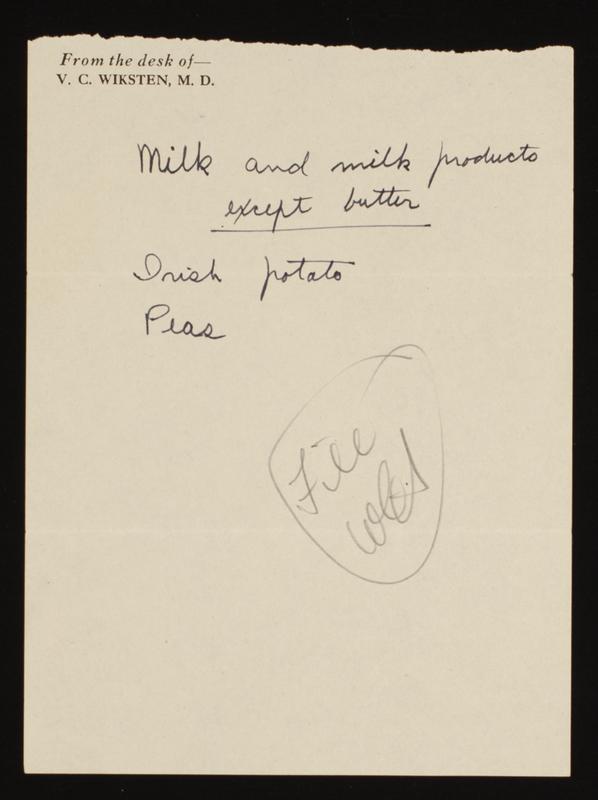 From the desk of—
V. C. WIKSTEN, M. D.
Milk and milk products
except butter
Irish potato
Peas
File